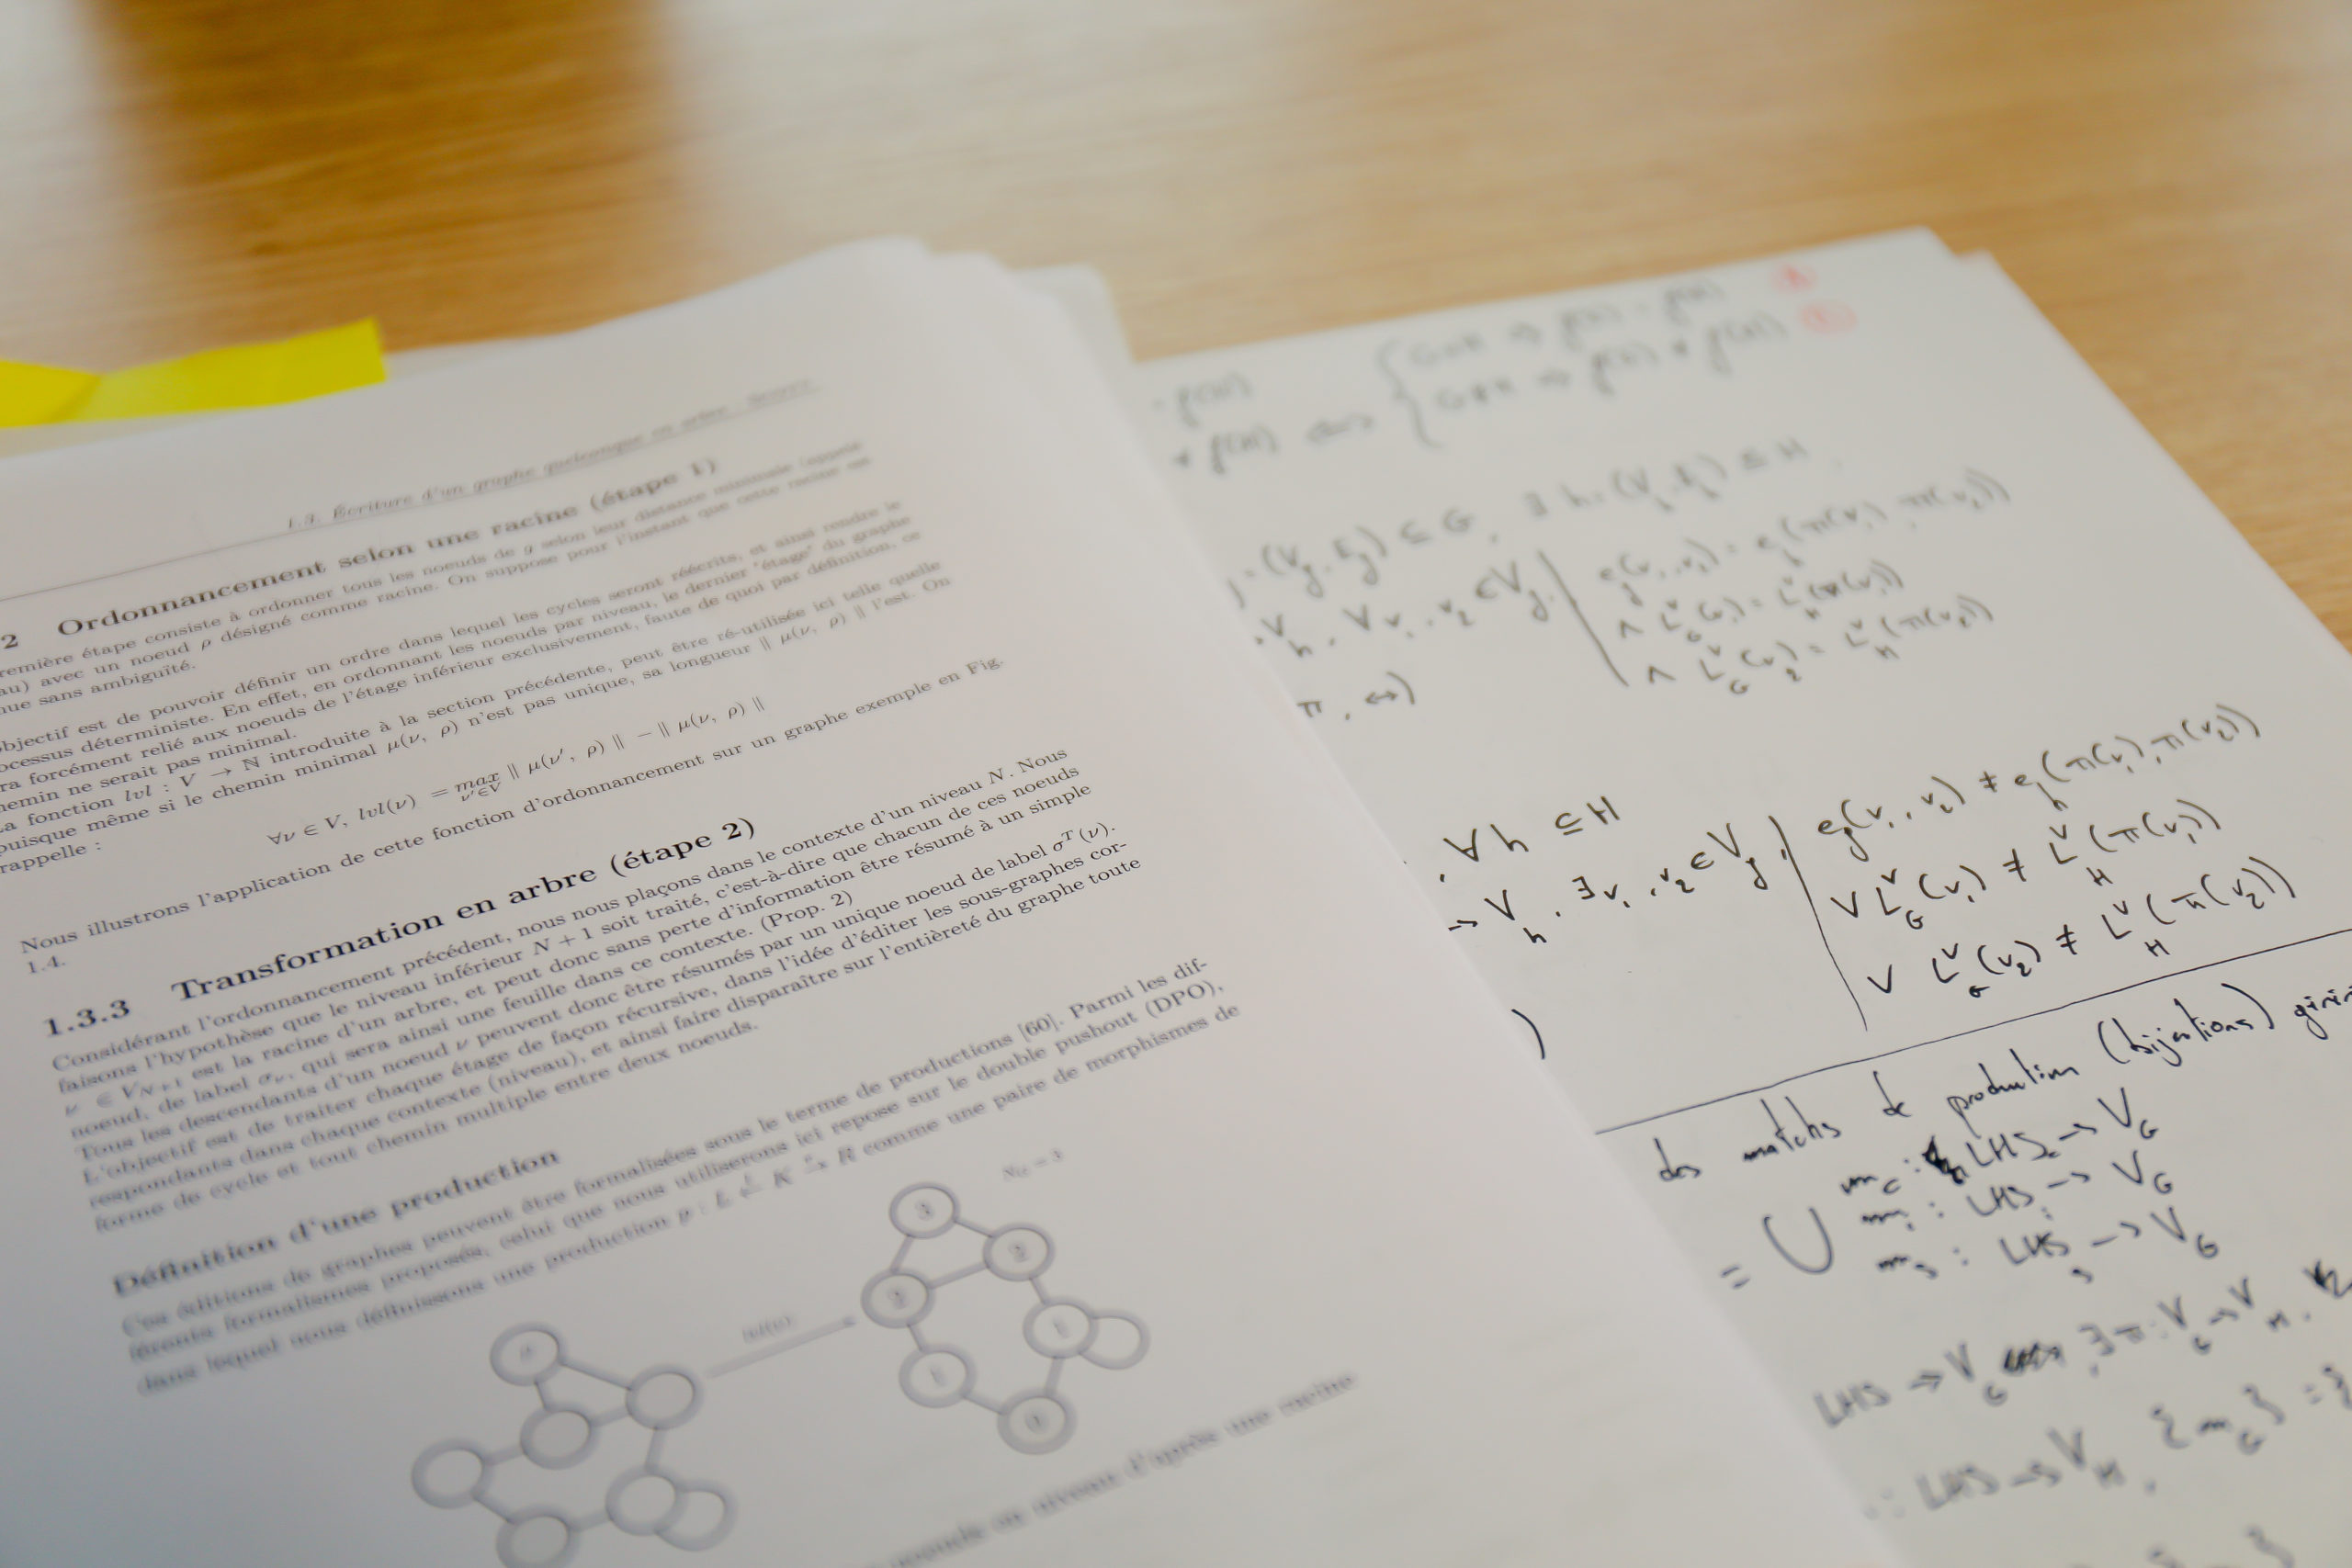 1.3. Écriture d'un graphe quelconque en arbre
2 Ordonnancement selon une racine (étape 1)
remière étape consiste à ordonner tous les noeuds de g selon leur distance minimale (appelé
au) avec un noeud ρ désigné comme racine. On suppose pour l'instant que cette racine est
nue sans ambiguïté.
objectif est de pouvoir définir un ordre dans lequel les cycles seront réécrits, et ainsi rendre le
ocessus déterministe. En effet, en ordonnant les noeuds par niveau, le dernier "étage" du graphe
ra forcément relié aux noeuds de l'étage inférieur exclusivement, faute de quoi par définition, ce
hemin ne serait pas minimal.
La fonction lvl : V → ℕ introduite à la section précédente, peut être ré-utilisée ici telle quelle
puisque même si le chemin minimal μ(ν, ρ) n'est pas unique, sa longueur ‖ μ(ν, ρ) ‖ l'est. On
rappelle :
∀ν ∈ V, lvl(ν) = max ‖ μ(ν′, ρ) ‖ − ‖ μ(ν, ρ) ‖
ν′∈V
Nous illustrons l'application de cette fonction d'ordonnancement sur un graphe exemple en Fig.
1.4.
1.3.3 Transformation en arbre (étape 2)
Considérant l'ordonnancement précédent, nous nous plaçons dans le contexte d'un niveau N. Nous
faisons l'hypothèse que le niveau inférieur N + 1 soit traité, c'est-à-dire que chacun de ces noeuds
ν ∈ V_{N+1} est la racine d'un arbre, et peut donc sans perte d'information être résumé à un simple
noeud, de label σ_ν, qui sera ainsi une feuille dans ce contexte. (Prop. 2)
Tous les descendants d'un noeud ν peuvent donc être résumés par un unique noeud de label σ^T(ν).
L'objectif est de traiter chaque étage de façon récursive, dans l'idée d'éditer les sous-graphes cor-
respondants dans chaque contexte (niveau), et ainsi faire disparaître sur l'entièreté du graphe toute
forme de cycle et tout chemin multiple entre deux noeuds.
Définition d'une production
Ces éditions de graphes peuvent être formalisées sous le terme de productions [60]. Parmi les dif-
férents formalismes proposés, celui que nous utiliserons ici repose sur le double pushout (DPO),
dans lequel nous définissons une production p : L ← K → R comme une paire de morphismes de
lvl(ν)
3
2
2
1
1
en niveau d'après une racine
∃ h = (V_h, E_h) ⊆ H
= (V_g, E_g) ⊆ G,
V_h, ∀ v₁, v₂ ∈ V_g,
e_g(v₁, v₂) = e_h(π(v₁), π(v₂))
∧ L^V_G(v₁) = L^V_H(π(v₁))
∧ L^V_G(v₂) = L^V_H(π(v₂))
π, ↔)
∀ h ⊆ H
→ V_h, ∃ v₁, v₂ ∈ V_g,
e_g(v₁, v₂) ≠ e_h(π(v₁), π(v₂))
∨ L^V_G(v₁) ≠ L^V_H(π(v₁))
∨ L^V_G(v₂) ≠ L^V_H(π(v₂))
)
des matchs de production (bijections)
m_c : LHS_c → V_G
= ∪ m_i : LHS_i → V_G
m_s : LHS_s → V_G
LHS → V_G, ∃ π : V_G → V_H,
: LHS → V_H, {m_G} = {